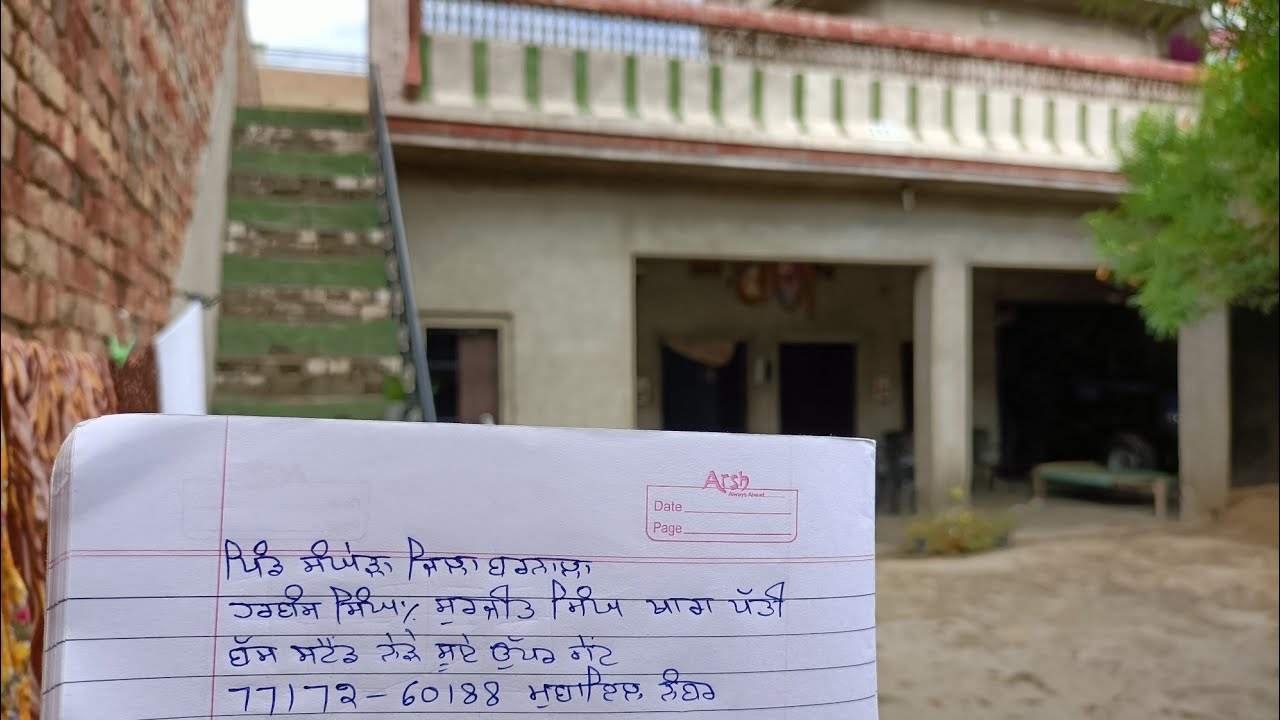 Arsh
Always Ahead...
Date
Page
ਪਿੰਡ ਸੰਘੇੜਾ ਜਿਲਾ ਬਰਨਾਲਾ
ਹਰਬੰਸ ਸਿੰਘ% ਸੁਰਜੀਤ ਸਿੰਘ ਖਾਗ ਪੱਤੀ
ਬੱਸ ਸਟੈਂਡ ਨੇੜੇ ਸੂਏ ਉੱਪਰ ਗੇਟ
77172-60188 ਮੁਬਾਇਲ ਨੰਬਰ